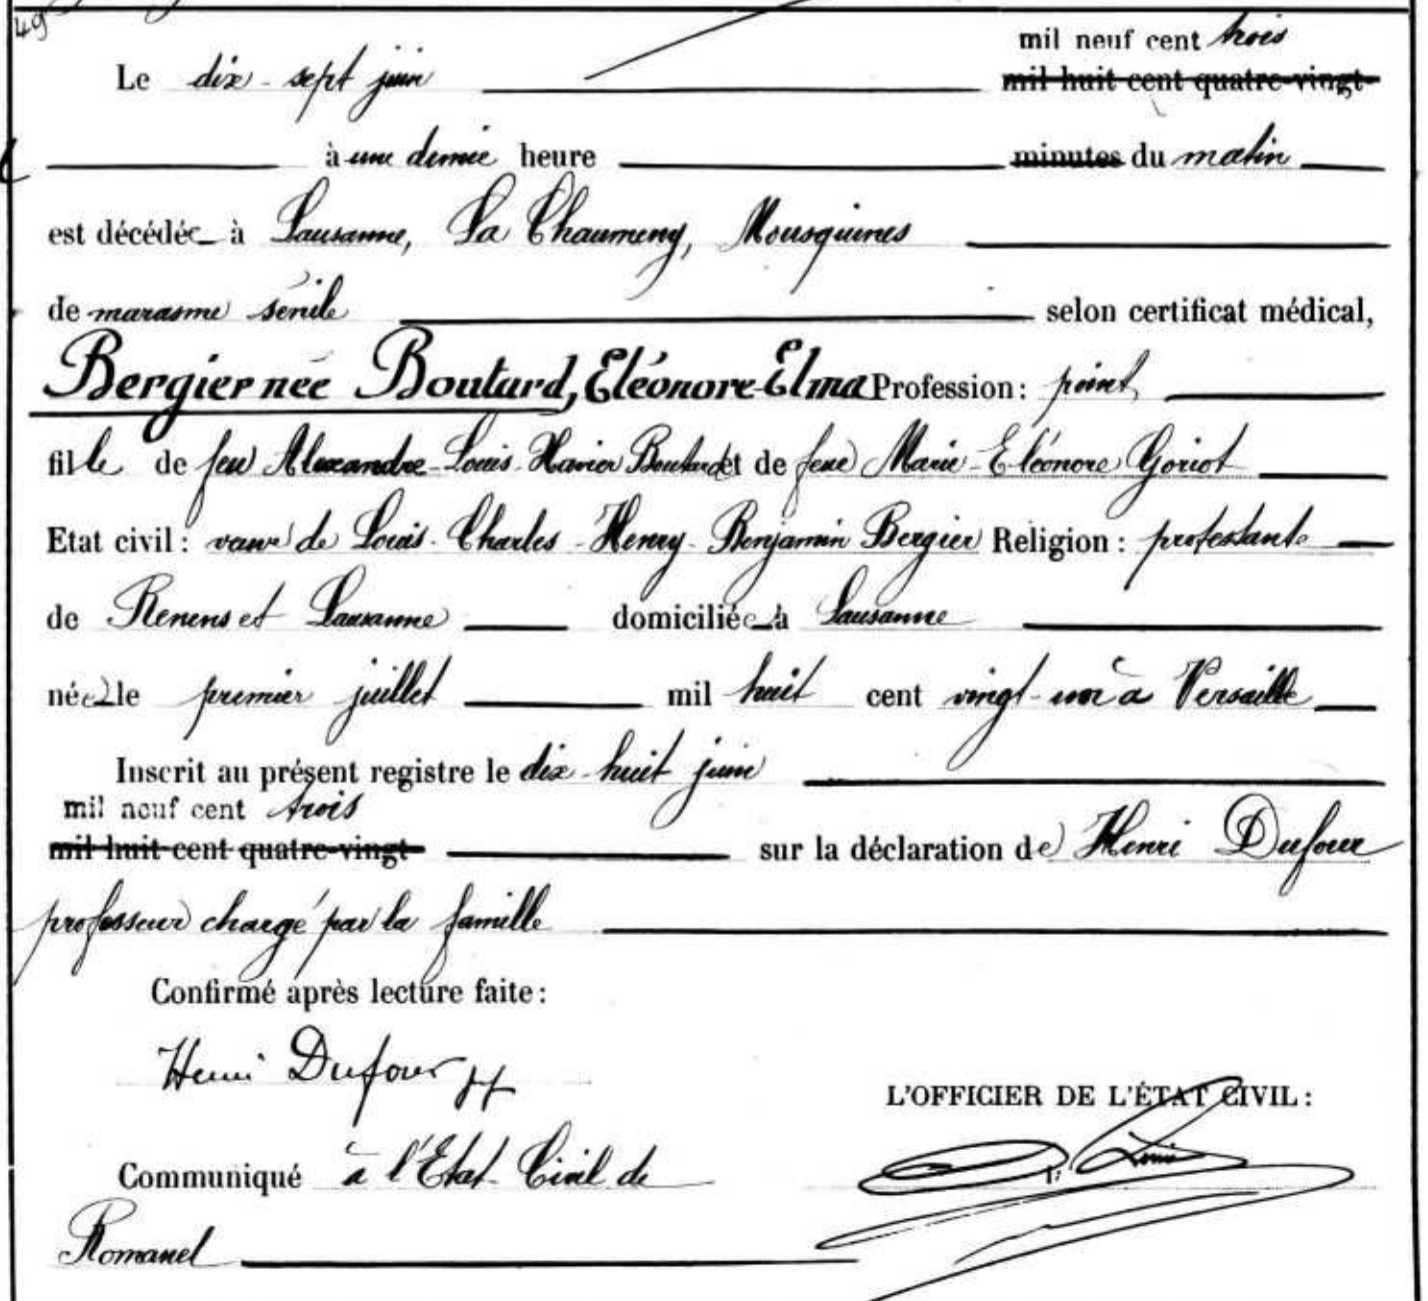 49
mil neuf cent trois
Le dix-sept juin mil huit cent quatre-vingt-
à une demie heure minutes du matin
est décédée à Lausanne, La Chaumeny, Mousquines
de marasme sénile selon certificat médical,
Bergier née Boutard, Eléonore-Elma Profession: point
fille de feu Alexandre-Louis-Xavier Boutard et de feue Marie-Eléonore Goriot
Etat civil: veuve de Louis-Charles-Henry-Benjamin Bergier Religion: protestante
de Renens et Lausanne domiciliée à Lausanne
née le premier juillet mil huit cent vingt-un à Versaille
Inscrit au présent registre le dix-huit juin
mil neuf cent trois
mil huit cent quatre-vingt- sur la déclaration de Henri Dufour
professeur chargé par la famille
Confirmé après lecture faite:
Henri Dufour pf
L'OFFICIER DE L'ÉTAT CIVIL:
Communiqué à l'Etat-Civil de
Romanel